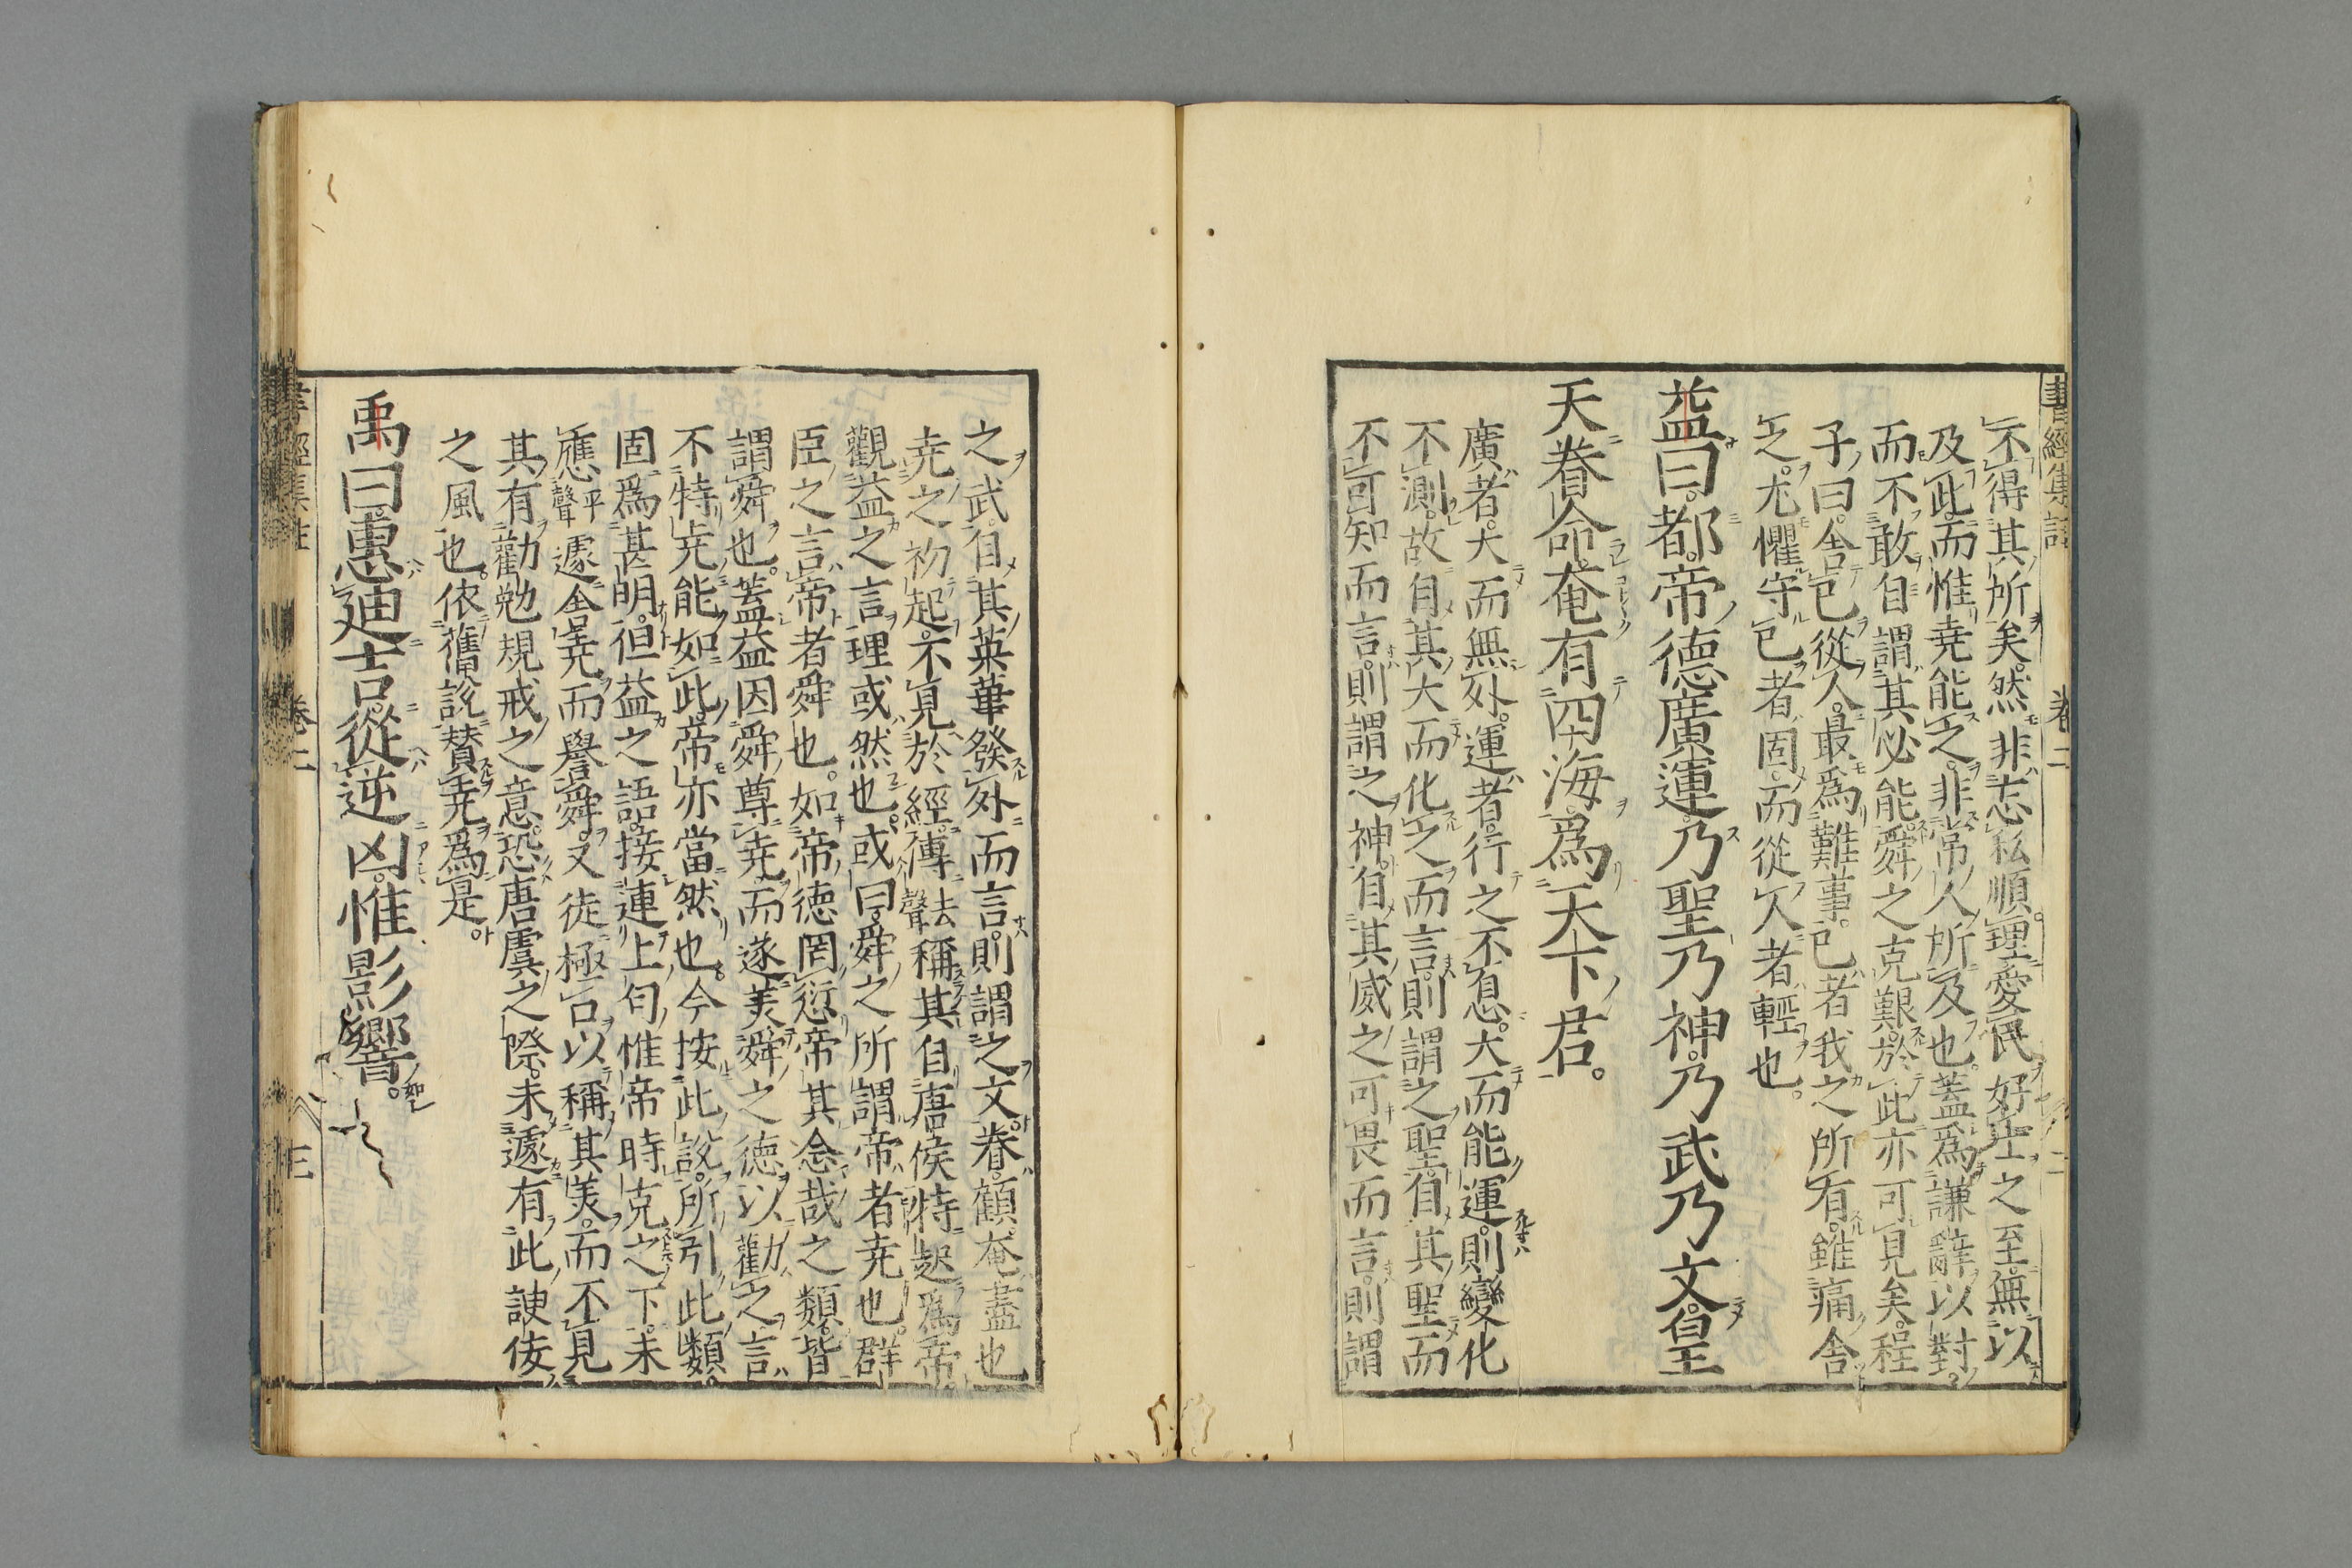 書經集註 卷二 二
不得其所矣。然非忘私順理。愛民好士之至。無以
及此。而惟堯能之。非常人所及也。蓋爲謙辭以對。
而不敢自謂其必能。舜之克艱。於此亦可見矣。程
子曰。舍己從人。最爲難事。己者我之所有。雖痛舍
之。尤懼守己者固。而從人者輕也。
益曰。都。帝德廣運。乃聖乃神。乃武乃文。皇
天眷命。奄有四海。爲天下君。
廣者。大而無外。運者。行之不息。大而能運。則變化
不測。故自其大而化之而言。則謂之聖。自其聖而
不可知而言。則謂之神。自其威之可畏而言。則謂
之武。自其英華發外而言。則謂之文。眷。顧。奄。盡也
堯之初起。不見於經。傳去聲稱其自唐侯特起爲帝。
觀益之言。理或然也。或曰。舜之所謂帝者堯也。群
臣之言帝者舜也。如帝德罔愆帝其念哉之類。皆
謂舜也。蓋益因舜尊堯。而遂美舜之德以勸之。言
不特堯能如此。帝亦當然也。今按此說。所引此類。
固爲甚明。但益之語。接連上句惟帝時克之下。未
應平聲遽舍堯而譽舜。又徒極口以稱其美。而不見
其有勸勉規戒之意。恐唐虞之際。未遽有此諛佞
之風也。依舊說贊堯爲是。
禹曰。惠迪吉。從逆凶。惟影響。
書經集註 卷二 三